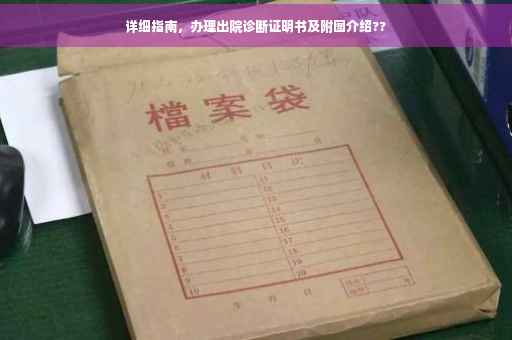 详细指南，办理出院诊断证明书及附图介绍??
檔案袋
材料目次
1 11
2 12
3 13
4 14
5 15
6 16
7 17
8 18
9 19
10 20
年 月 日